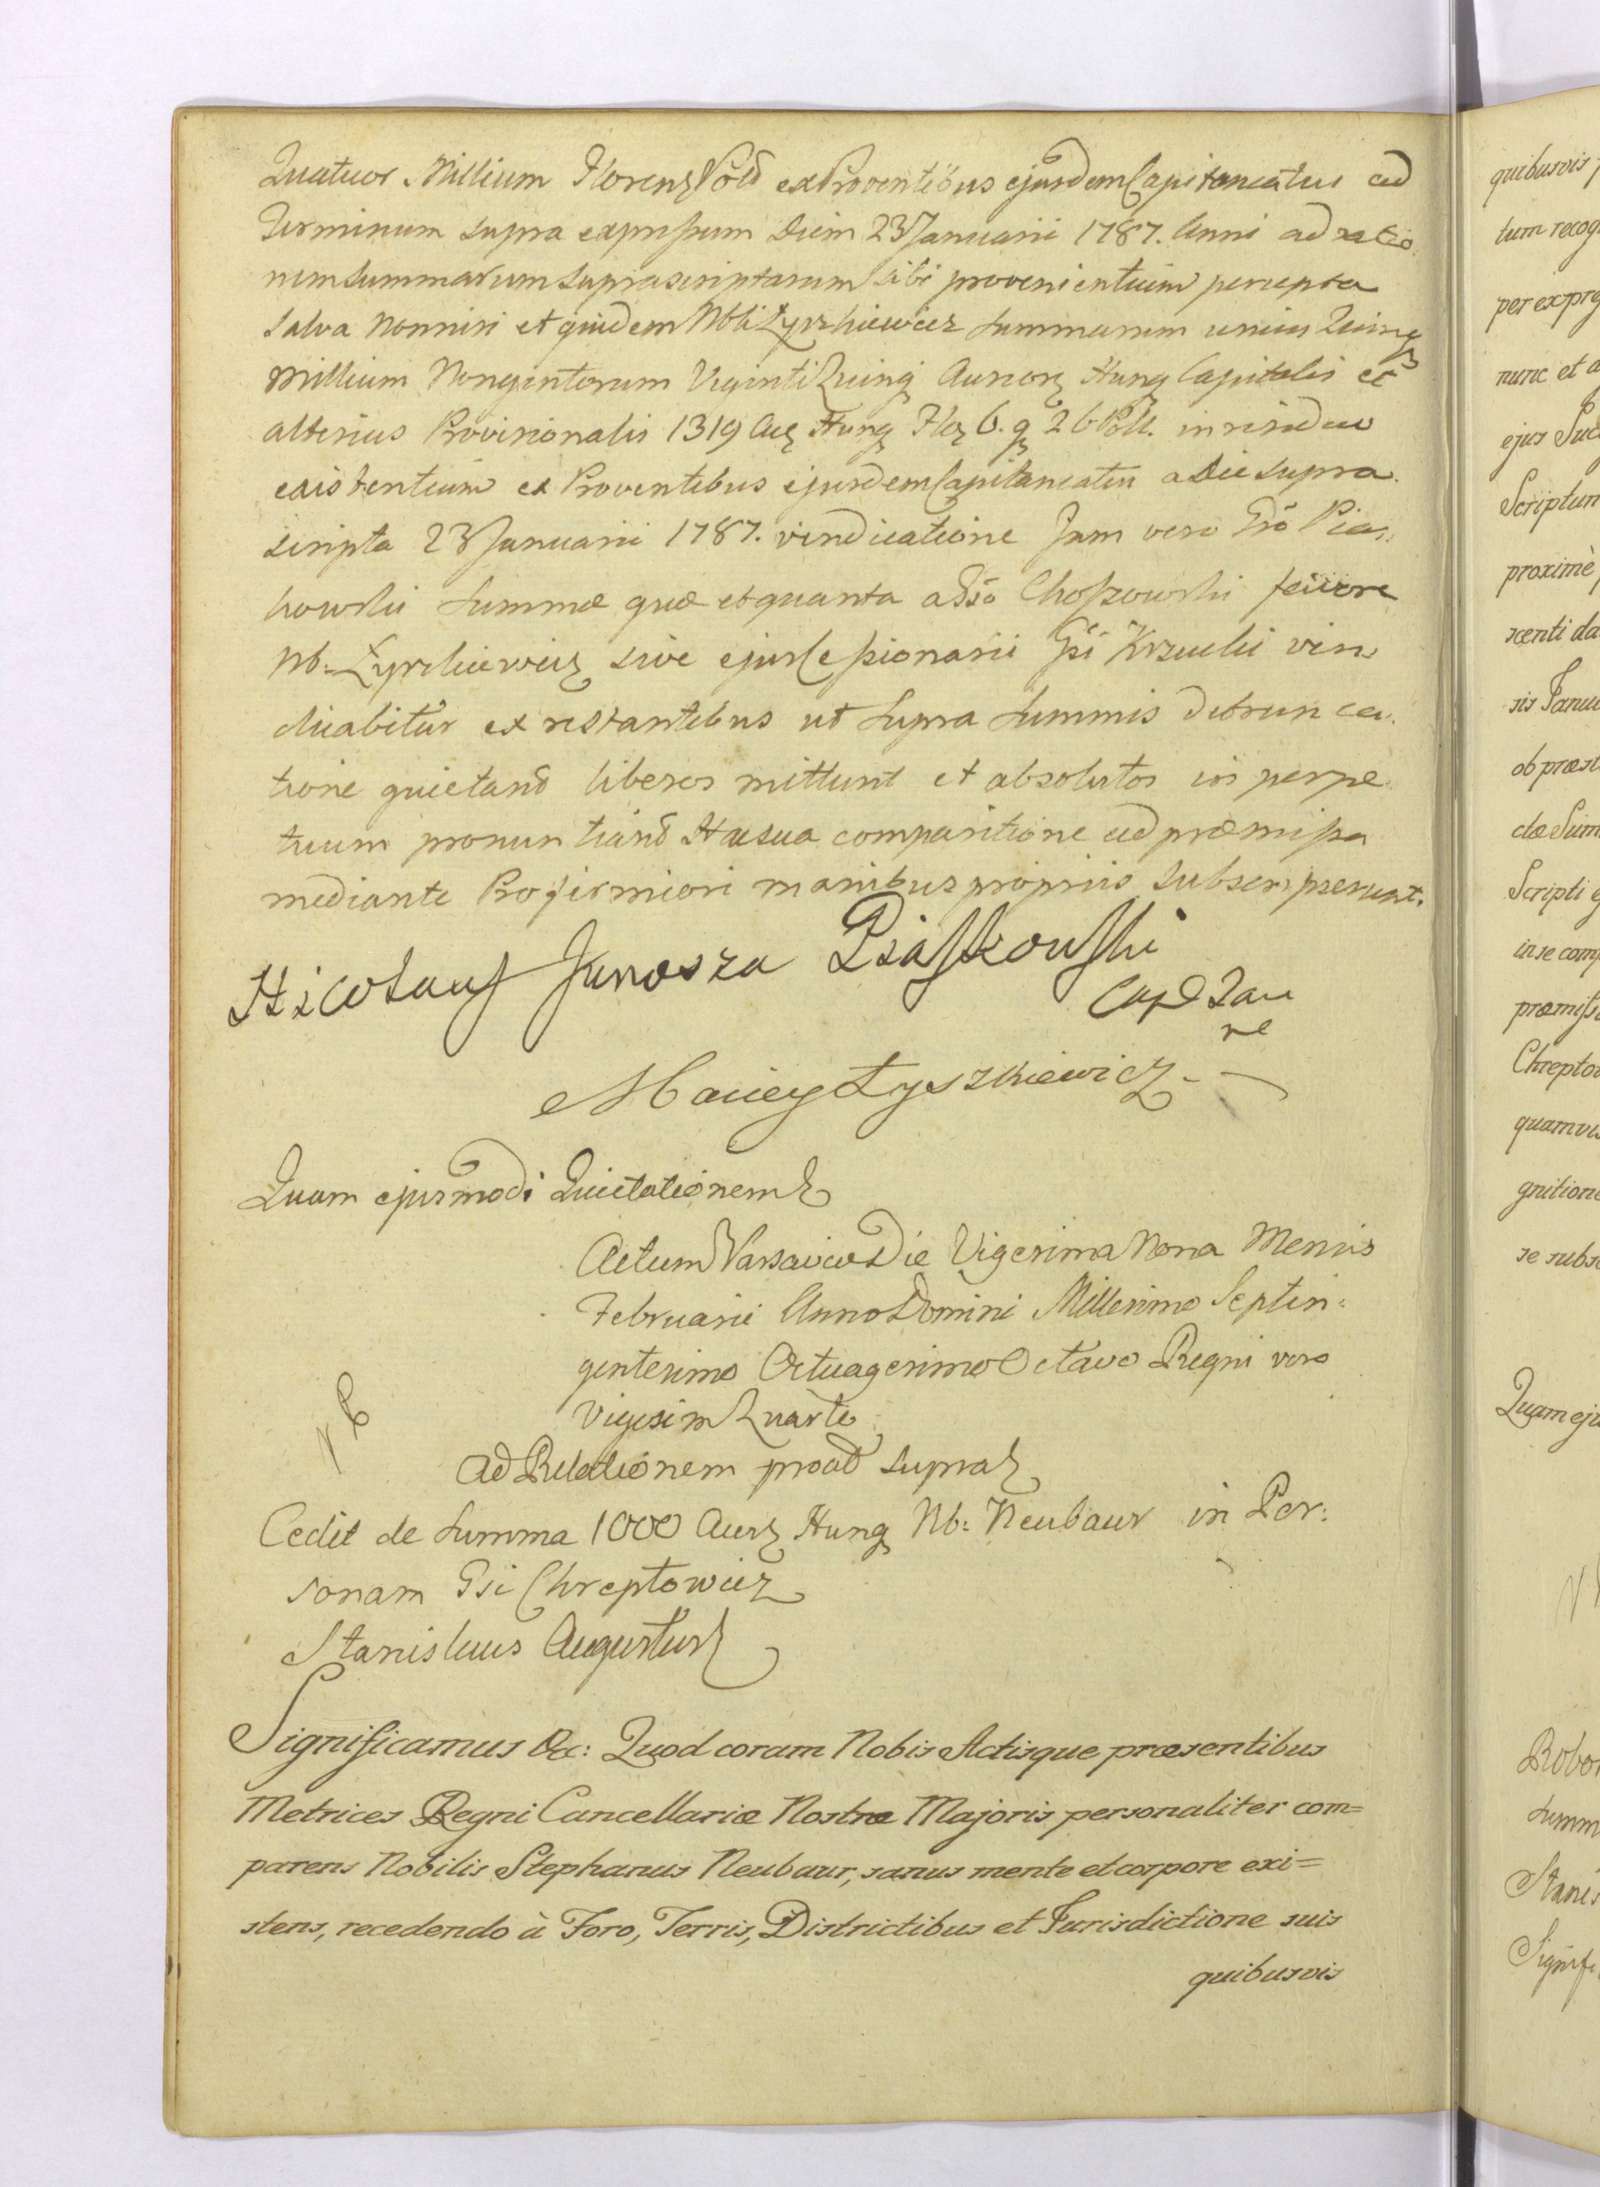 Quatuor Millium Floreng Pold ex Proventibus ejusdem Capitaneatus ad
Terminum supra expressum Diem 23 Januarii 1787. Anni ad ratio
nem summarum suprascriptarum sibi provenientium percepta
salva nonnisi et quidem Nbli Łyszkiewicz summarum unius Quinq
Millium Nongentorum Viginti Quinq Aureorz Hung Capitalis et
alterius Provisionalis 1319 Aurz Hung Florz 6. gz 26 Poll. in residuo
existentium ex Proventibus ejusdem Capitaneatus a Die supra
scripta 23 Januarii 1787. vindicatione Jam vero Gso Pias
kowski summæ quæ et quanta a Gso Choszowski favore
Nb: Łyszkiewicz sive ejus Cessionarii Gsi Krzucki vin
dicabitur ex restantibus ut supra summis detrunca
tione quietand liberos mittunt et absolutos in perpe
tuum pronuntiand Hac sua comparitione ad præmissa
mediante Pro firmiori manibus propriis subscripserunt.
Nicolaus Junosza Piaskowski
Cap Tau
re
Maciey Łyszkiewicz
Quam ejusmodi Quietationem
Actum Varsaviæ Die Vigesima Nona Mensis
Februarii Anno Domini Millesimo Septin
gentesimo Octuagesimo Octavo Regni vero
Vigesim Quarto
Ad Relationem proūt supra
Cedit de summa 1000 Aurz Hung Nb: Neubaur in Per:
sonam Gsi Chreptowicz
Stanislaus Augustus
Significamus &c: Quod coram Nobis Actisque præsentibus
Metrices Regni Cancellariæ Nostræ Majoris personaliter com=
parens Nobilis Stephanus Neubaur, sanus mente et corpore exi=
stens, recedendo à Foro, Terris, Districtibus et Jurisdictione suis
quibusvis
quibusvis
tum recog
per expre
nunc et a
ejus Suc
Scriptum
proximè
scenti da
sis Janu
ob præst
dæ Sum
Scripti e
in se com
præmiss
Chreptow
quamvis
gnitione
se subs
Quam eju
Robo
summ
Stanis
Signifi